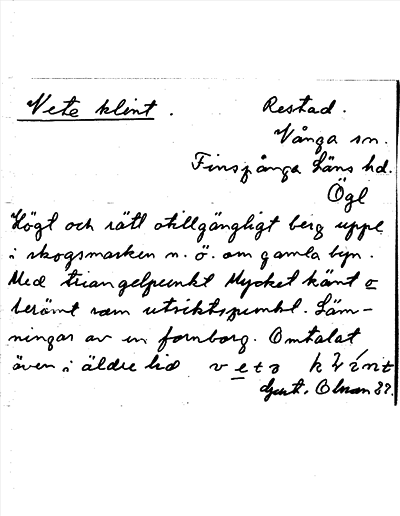 Vete klint. Restad.
Vånga sn.
Finspånga Läns hd.
Ögl
Högt och rätt otillgängligt berg uppe
i skogsmarken n. ö. om gamla byn.
Med triangelpunkt Mycket känt o
berömt som utsiktspunkt. Läm-
ningar av en fornborg. Omtalat
även i äldre tid veta klint